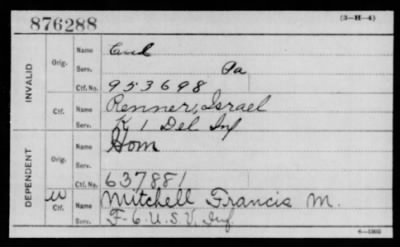 876288 (3-H-4)
INVALID
Orig.
Name End
Serv. Pa
Ctf. No. 953698
Ctf.
Name Renner, Israel
Serv. K 1 Del Inf
DEPENDENT
Orig.
Name Hom
Serv.
Ctf. No. 637881
W Ctf.
Name Mitchell Francis M.
Serv. F-6. U.S.V. Inf.